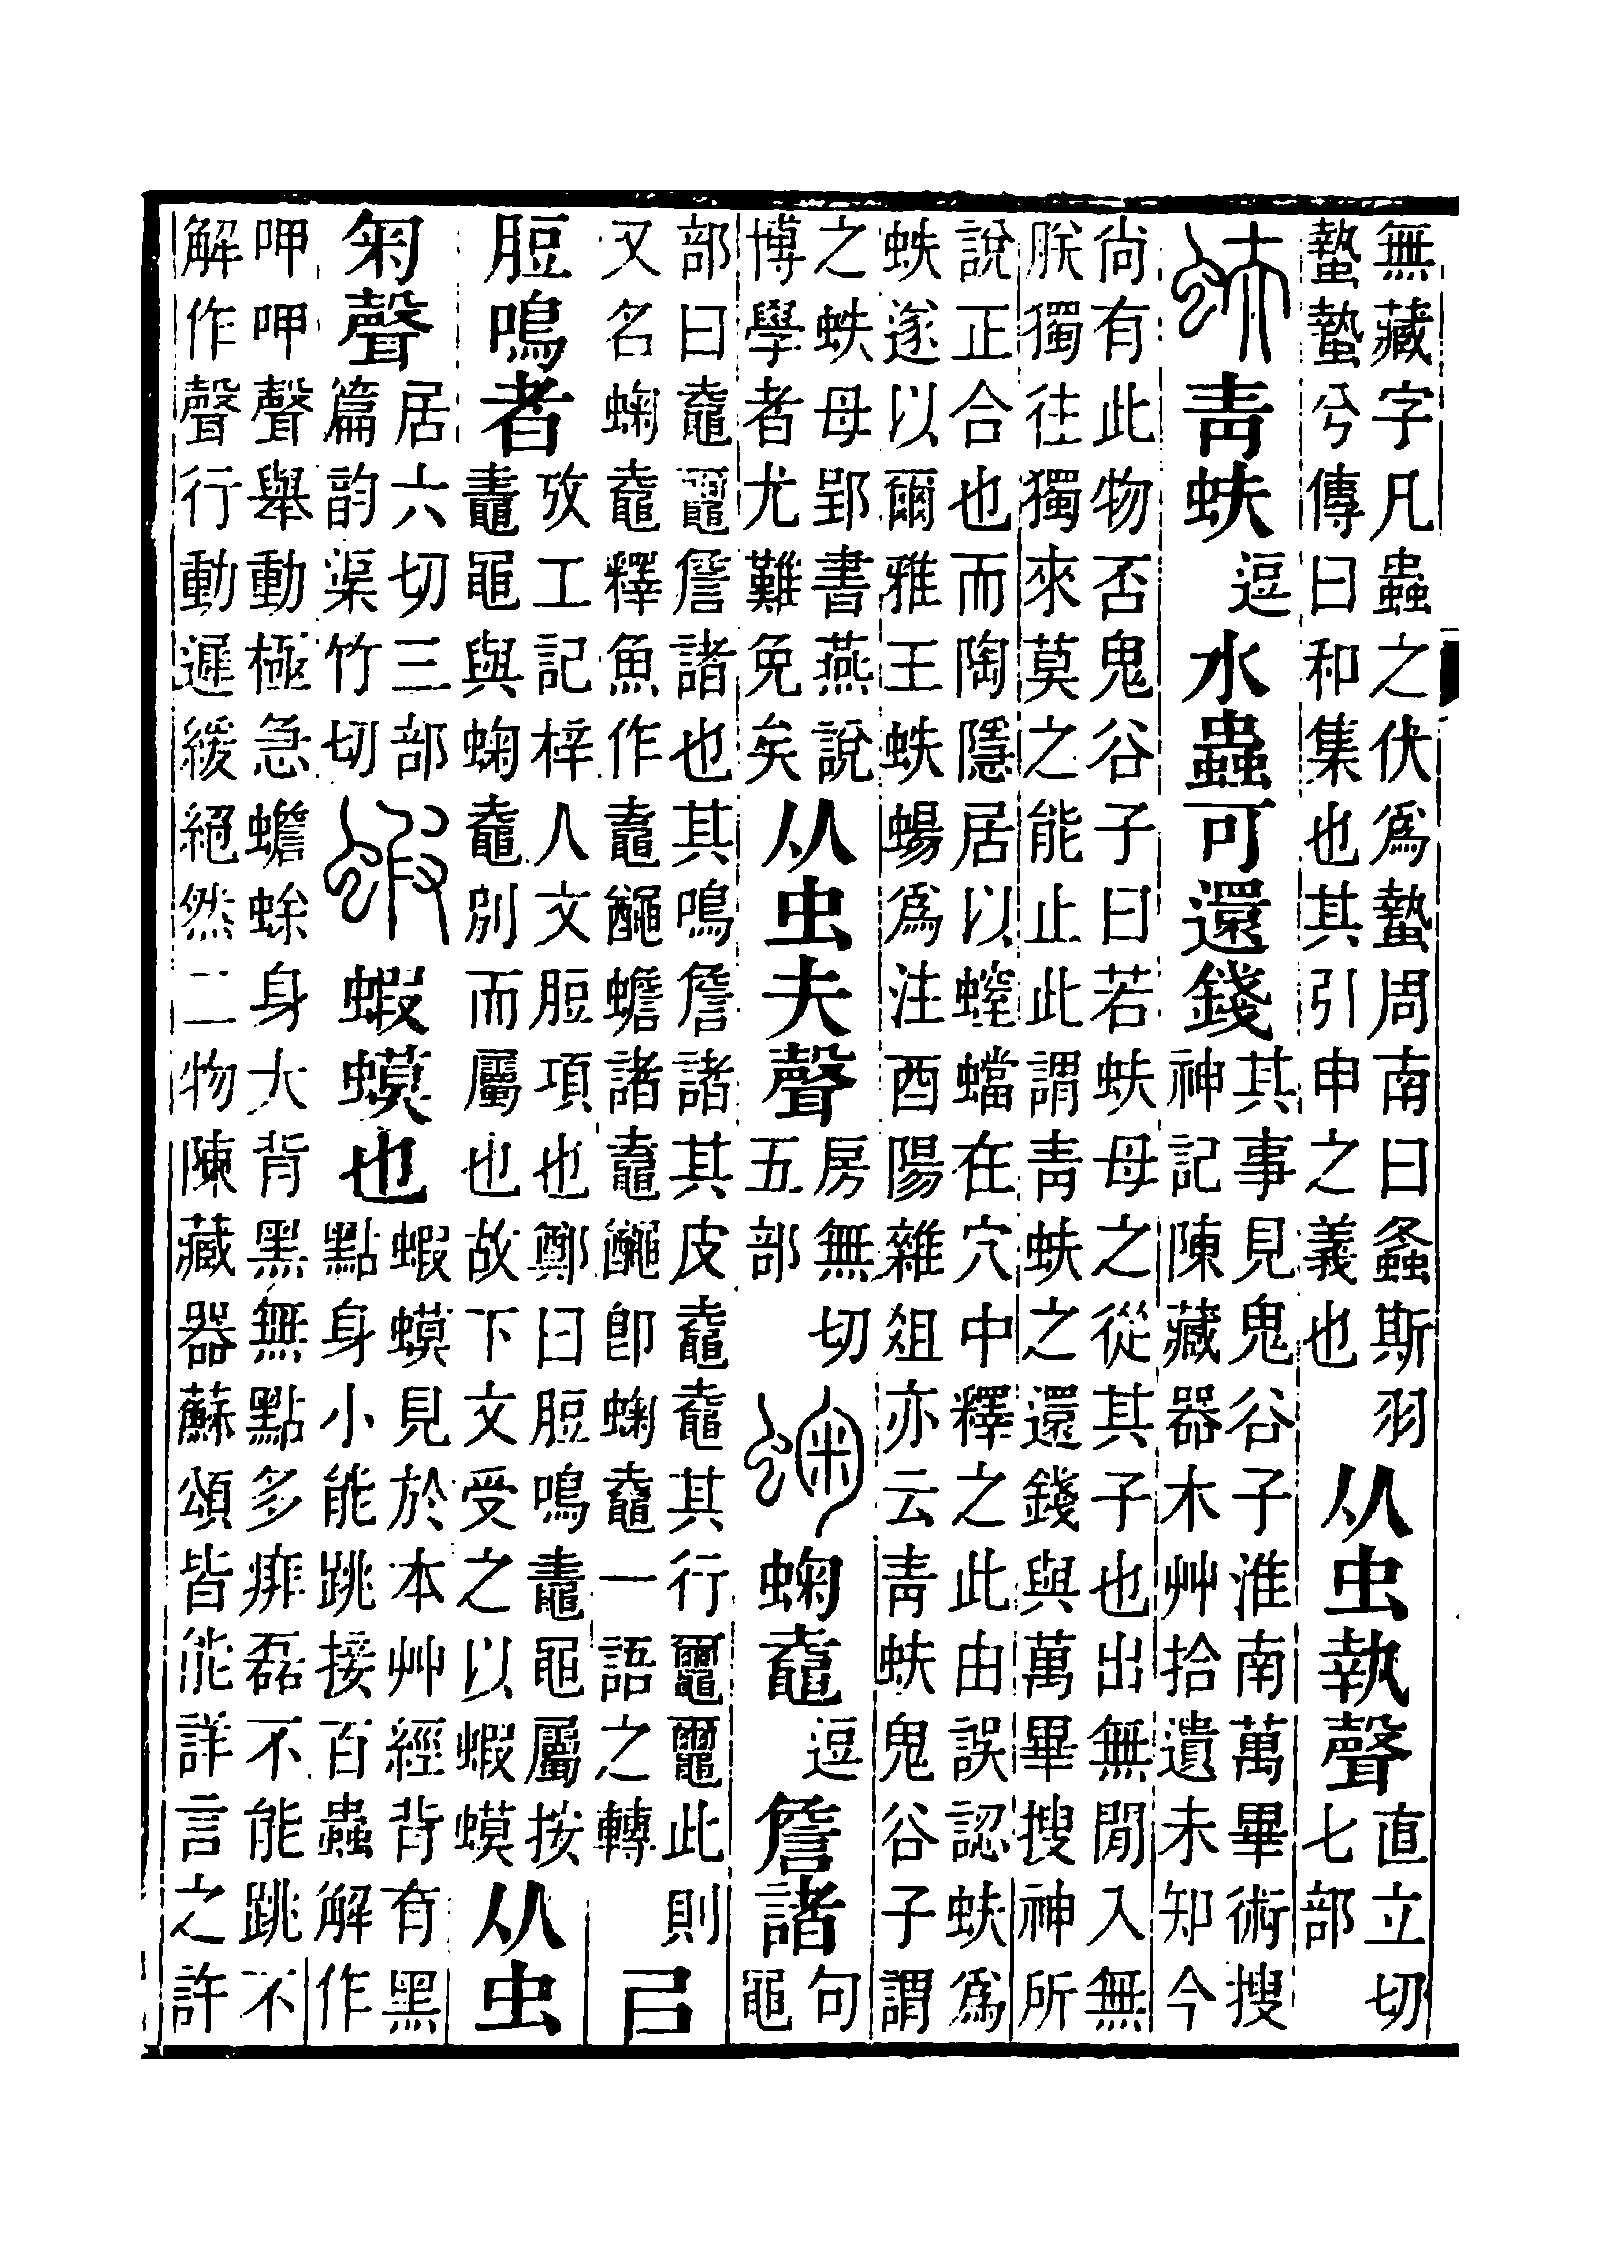 無藏字凡蟲之伏爲蟄周南曰螽斯羽
蟄蟄兮傳曰和集也其引申之義也
从虫執聲
直立切
七部
蚨
靑蚨
逗
水蟲可還錢
其事見鬼谷子淮南萬畢術搜
神記陳藏器木艸拾遺未知今
尙有此物否鬼谷子曰若蚨母之從其子也出無閒入無
朕獨往獨來莫之能止此謂靑蚨之還錢與萬畢搜神所
說正合也而陶隱居以螲蟷在穴中釋之此由誤認蚨爲
蚨遂以爾雅王蚨蜴爲注酉陽雜俎亦云靑蚨鬼谷子謂
之蚨母郢書燕說
博學者尤難免矣
从虫夫聲
房無切
五部
䗇
䗇鼀
逗
詹諸
句
黽
部曰鼀𪓿詹諸也其鳴詹諸其皮鼀鼀其行𪓿𪓿此則
又名䗇鼀釋魚作鼁𪓰蟾諸鼁𪓰卽䗇鼀一語之轉
㠯
脰鳴者
攷工記梓人文脰項也鄭曰脰鳴鼃黽屬按
鼃黽與䗇鼀別而屬也故下文受之以蝦蟆
从虫
匊聲
居六切三部
篇韵渠竹切
蝦
蝦蟆也
蝦蟆見於本艸經背有黑
點身小能跳接百蟲解作
呷呷聲舉動極急蟾蜍身大背黑無點多痱磊不能跳不
解作聲行動遲緩絕然二物陳藏器蘇頌皆能詳言之許